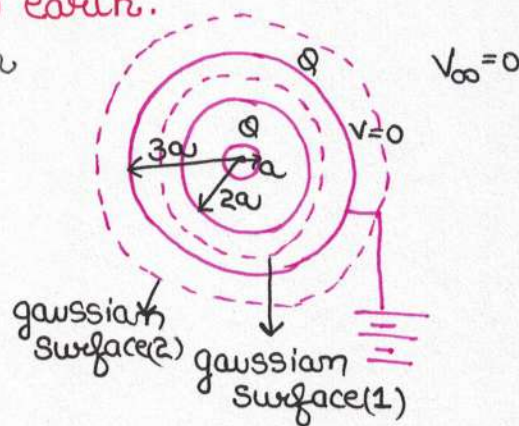 earth.
Q
V∞=0
V=0
Q
3a
a
2a
gaussian
surface(2)
gaussian
surface(1)